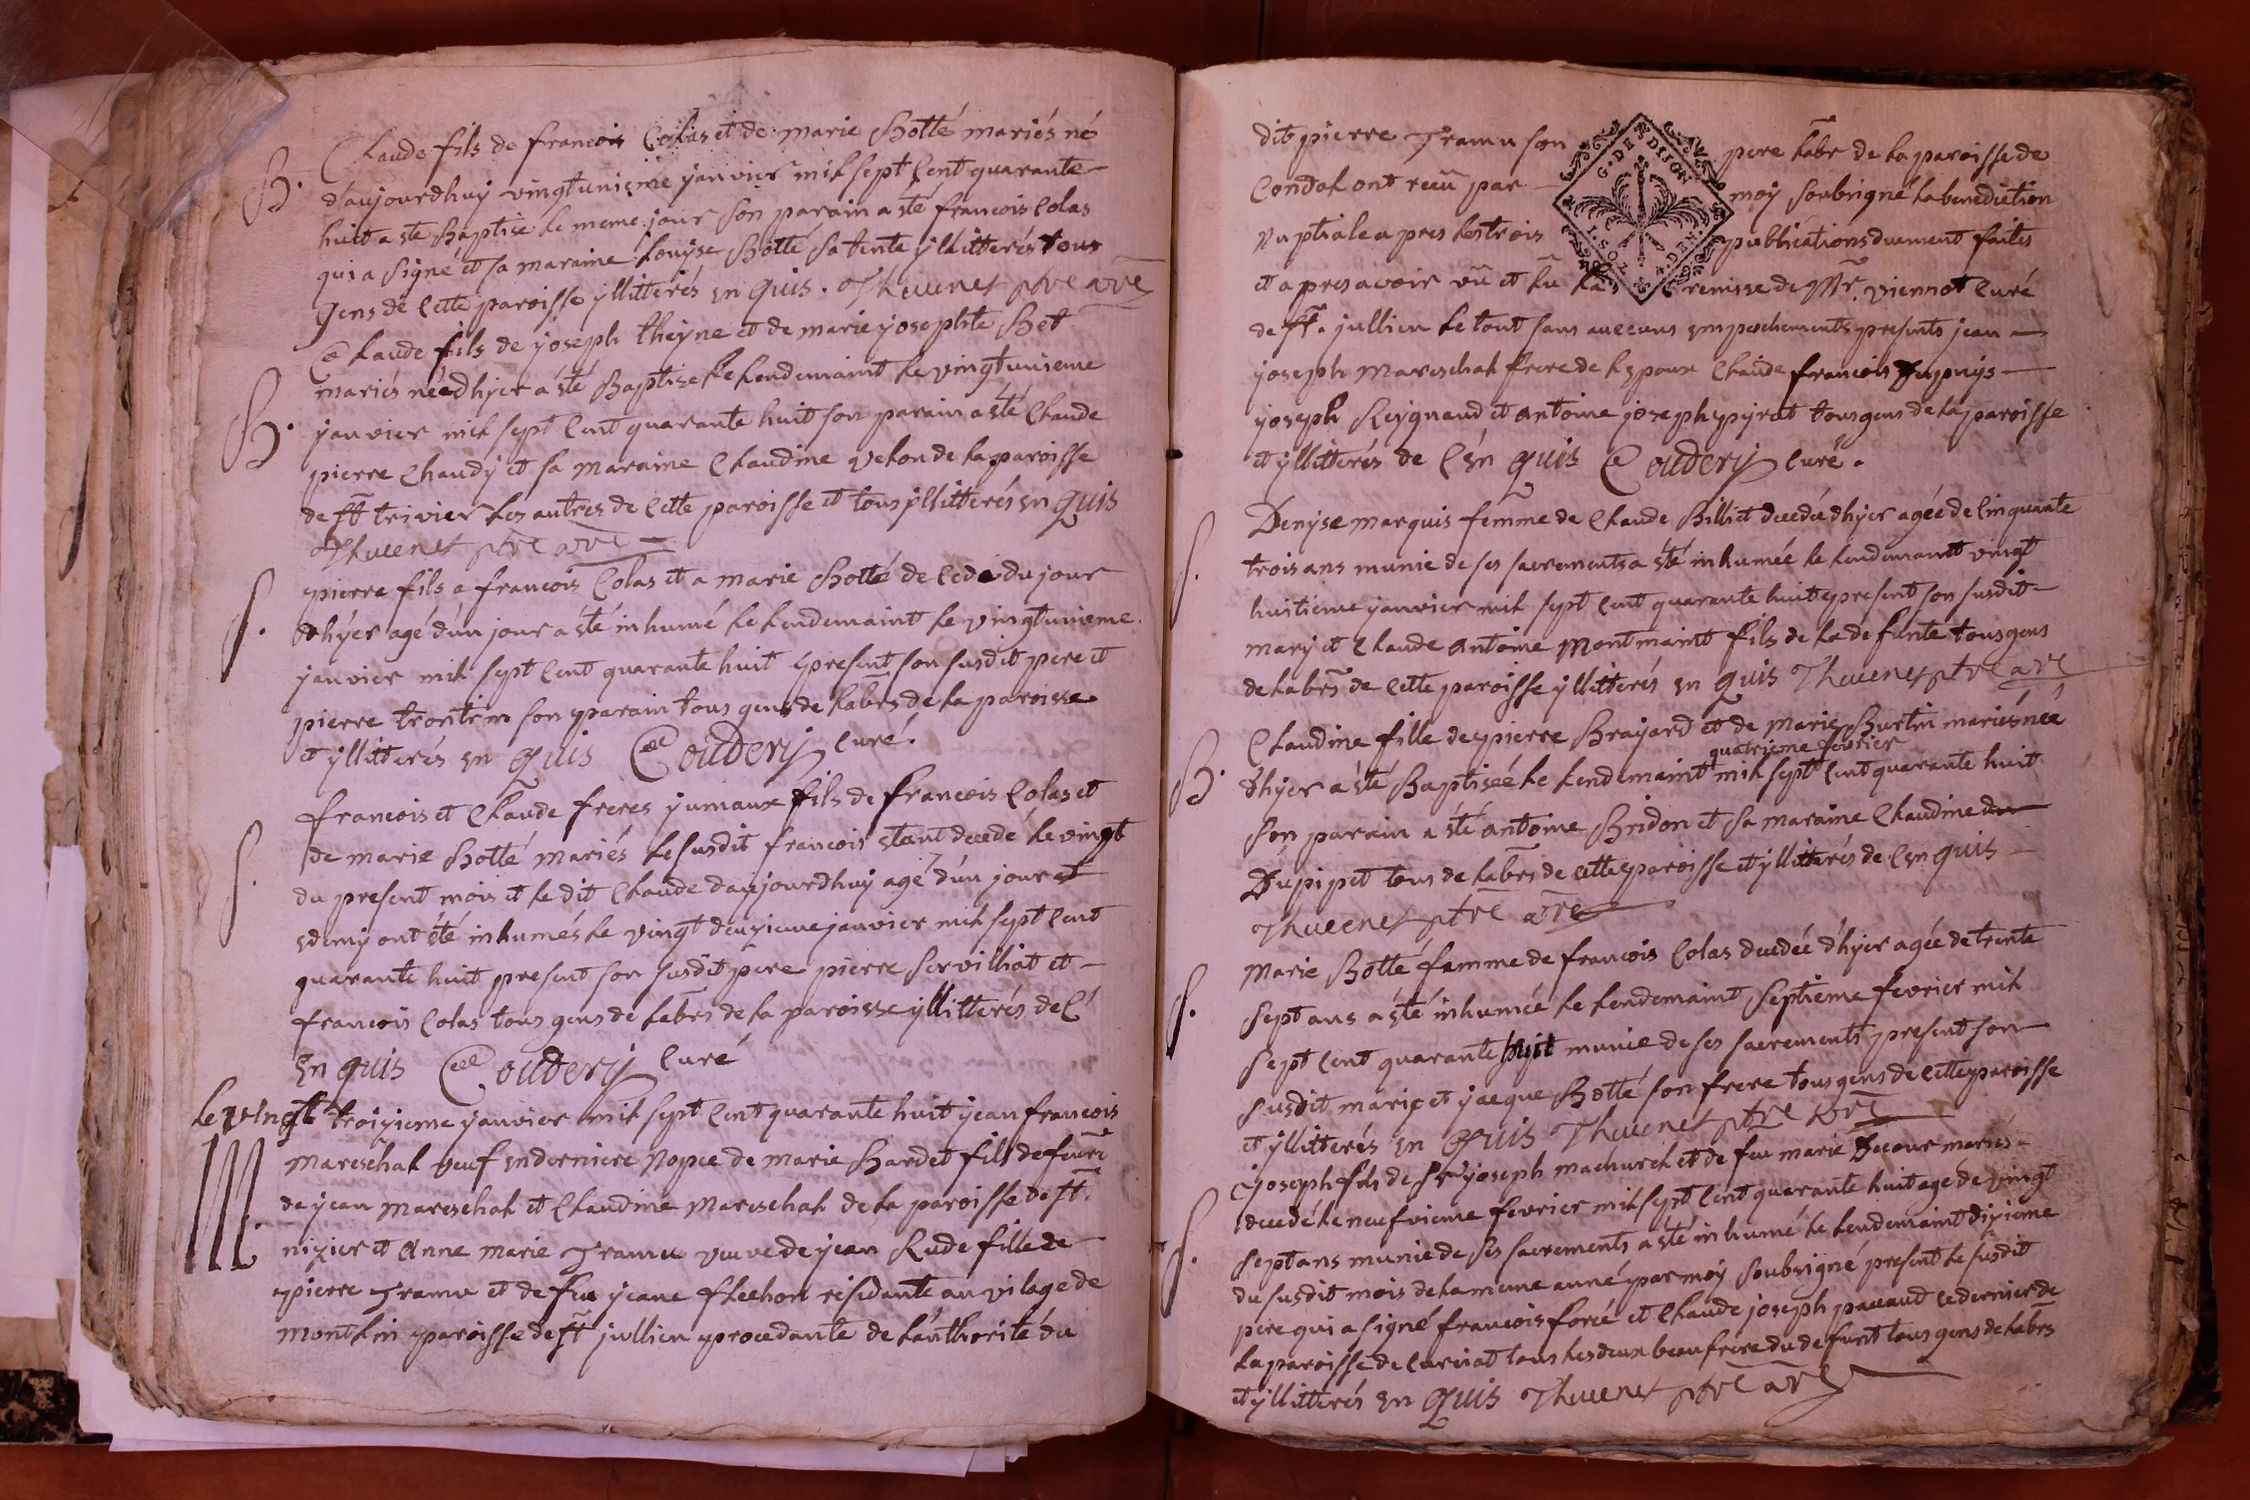 B. Claude fils de francois Colas et de marie Botté mariés né
d'aujourdhuy vingtunieme janvier mil sept cent quarante
huit a ste Baptise le meme jour son parain a sté francois Colas
qui a signé et sa maraine Louyse Botté sa tente yllitterés tous
gens de cette paroisse yllitterés en quis. Thevenet ptre vre
B. Claude fils de joseph theyne et de marie josephte Bet
mariés née dhjer a sté Baptise le lendemaint le vingtunieme
janvier mil sept cent quarante huit son parain a sté Claude
pierre Chaudy et sa maraine Claudine Velon de la paroisse
de st trivier les autres de cette paroisse et tous yllitterés en quis
Thevenet ptre vre
S. pierre fils a francois Colas et a marie Botté decedé du jour
dhyer agé d'un jour a sté inhumé le lendemaint le vingtunieme
janvier mil sept cent quarante huit present son susdit pere et
pierre trontin son parain tous gens de labrs de la paroisse
et yllitterés en quis Coudery curé.
S. francois et Claude freres jumaux fils de francois Colas et
de marie Botté mariés le susdit francois stant decedé le vingt
du present mois et le dit Claude daujourdhuy agé d'un jour et
demy ont été inhumés le vingt deuzieme janvier mil sept cent
quarante huit present son susdit pere pierre Servilliat et
francois Colas tous gens de labrs de la paroisse yllitterés de ce
en quis Coudery curé
M. le vingt troizieme janvier mil sept cent quarante huit jean francois
Mareschal veuf en derniere Nopce de marie Bardet fils de feu
de jean Mareschal et Claudine Mareschal de la paroisse de st.
nizier et Anne marie Tramu veuve de jean Rude fille de
pierre Tramu et de feu jeane flechon residante au vilage de
montlin paroisse de st jullien procedante de l'anthorité du
dit pierre Tramu son pere labr de la paroisse de
Condal ont receu par moy soubsigné la benediction
Nuptiale apres les trois publications duement faites
G. DE DIJON
et apres avoir vû et lu la remisse de Mr. viennot curé
de st. jullien le tout sans aucuns empechements presents jean
joseph Mareschal frere de lepoux Claude francois Dupuys
joseph Reygnaud et Antoine joseph pyrat tous gens de la paroisse
et yllitterés de ce en quis Coudery curé.
S. Denyse marquis femme de Claude Billiet decedée dhjer agée de cinquante
trois ans munie de ses sacrements a sté inhumée le lendemaint vingt
huitieme janvier mil sept cent quarante huit present son susdit
mary et Claude Antoine Montmaint fils de la defunte tous gens
de labrs de cette paroisse yllitterés en quis Thevenet ptre vre
B. Claudine fille de pierre Brayard et de Marie Burtin mariés née
quatrieme fevrier
dhyer a sté Baptiseé le lendemaint mil sept cent quarante huit
son parain a sté Antoine Bridon et sa maraine Claudine du
Dupipet tous de labrs de cette paroisse et yllitterés de ce en quis
Thevenet ptre vre
S. Marie Botté famme de francois Colas decedée d'hyer agée de trente
sept ans a sté inhumée le lendemaint septieme fevrier mil
sept cent quarante huit munie de ses sacrements present son
susdit marie et jacque Botté son frere tous gens de cette paroisse
et yllitterés en quis Thevenet ptre vre
S. joseph fils de Sr joseph machurel et de feu marie Decour mariés
decedé le neufvieme fevrier mil sept cent quarante huit agé de vingt
sept ans munie de ses sacrements a sté inhumé le lendemaint dizieme
du susdit mois de la meme anné par moy soubsigné present le susdit
pere qui a signé francois forcé et Claude joseph pauaud ce dernier de
la paroisse de curciat tous les deux beau frere du defunt tous gens de labrs
et yllitterés en quis Thevenet ptre vre